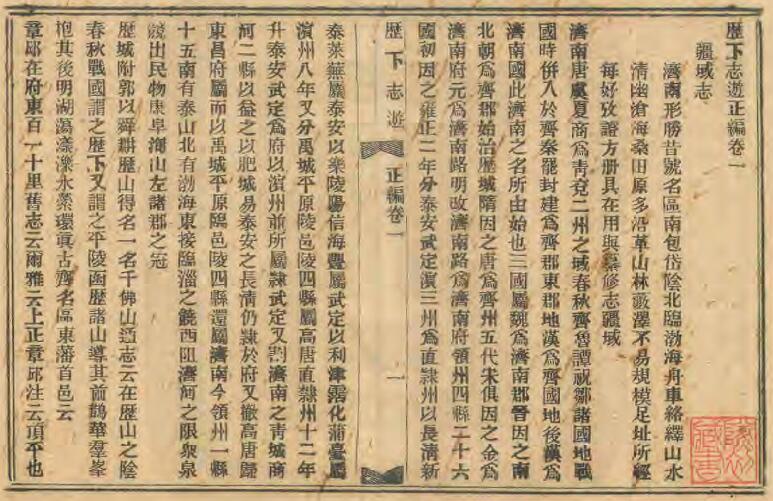 歷下志遊正編卷一
疆域志
濟南形勝昔號名區南包岱陰北臨渤海舟車絡繹山水
清幽滄海桑田原多沿革山林藪澤不易規模足址所經
每好攷證方册具在用與纂修志疆域
濟南唐虞夏商爲靑兗二州之域春秋齊魯譚祝鄒諸國地戰
國時併入於齊秦罷封建爲齊郡東郡地漢爲齊國地後漢爲
濟南國此濟南之名所由始也三國屬魏爲濟南郡晉因之南
北朝爲齊郡始治歷城隋因之唐爲齊州五代宋俱因之金爲
濟南府元爲濟南路明改濟南路爲濟南府領州四縣二十六
國初因之雍正二年分泰安武定濱三州爲直隸州以長淸新
歷下志遊
正編卷一
一
泰萊蕪屬泰安以樂陵陽信海豐屬武定以利津霑化蒲臺屬
濱州八年又分禹城平原陵邑陵四縣屬高唐直隸州十二年
升泰安武定爲府以濱州前所屬隸武定又割濟南之靑城商
河二縣以益之以肥城易泰安之長淸仍隸於府又撤高唐歸
東昌府屬而以禹城平原臨邑陵四縣還屬濟南今領州一縣
十五南有泰山北有渤海東接臨淄之饒西阻濟河之限衆泉
競出民物康阜洵山左諸郡之冠
歷城附郭以舜耕歷山得名一名千佛山通志云在歷山之陰
春秋戰國謂之歷下又謂之平陵函歷諸山導其前鵲華羣峯
抱其後明湖蕩漾濼水縈環眞古齊名區東藩首邑云
章邱在府東百一十里舊志云爾雅云上正章邱注云頂平也